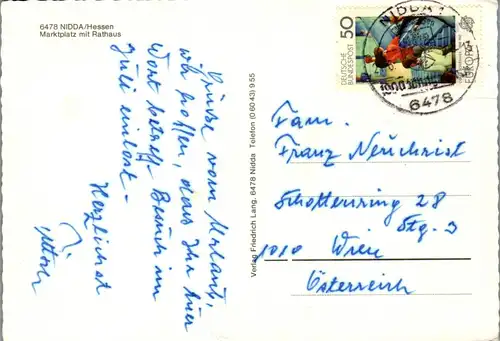 6478 NIDDA/Hessen
Marktplatz mit Rathaus
Grüße vom Urlaub,
wir hoffen, dass Ihr Euer
Wort betreff Besuch im
Juli einlöst -
Herzlichst
Verlag Friedrich Lang, 6478 Nidda Telefon (0 60 43) 9 55
NIDDA 1
6478
50
DEUTSCHE
BUNDESPOST
EUROPA
Fam.
Franz Neuchrist
Schottenring 28
Stg. 3
1010 Wien
Österreich